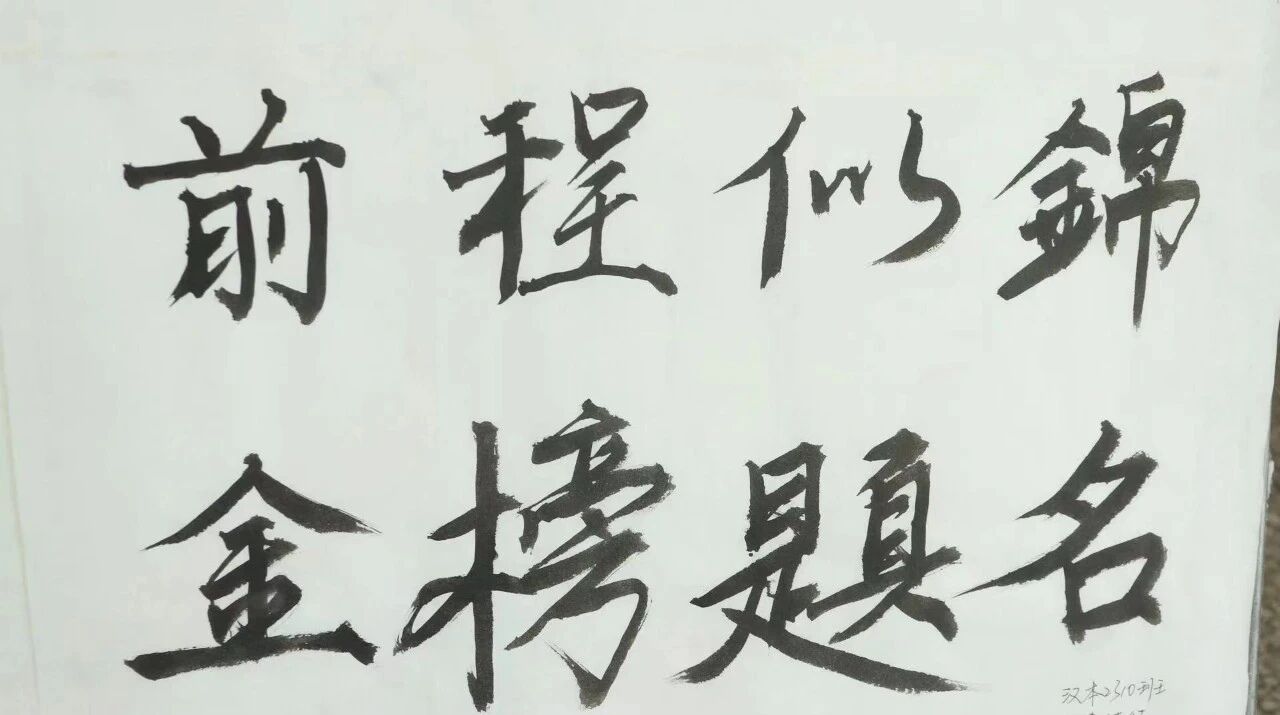 前程似錦
金榜題名
汉本2310班